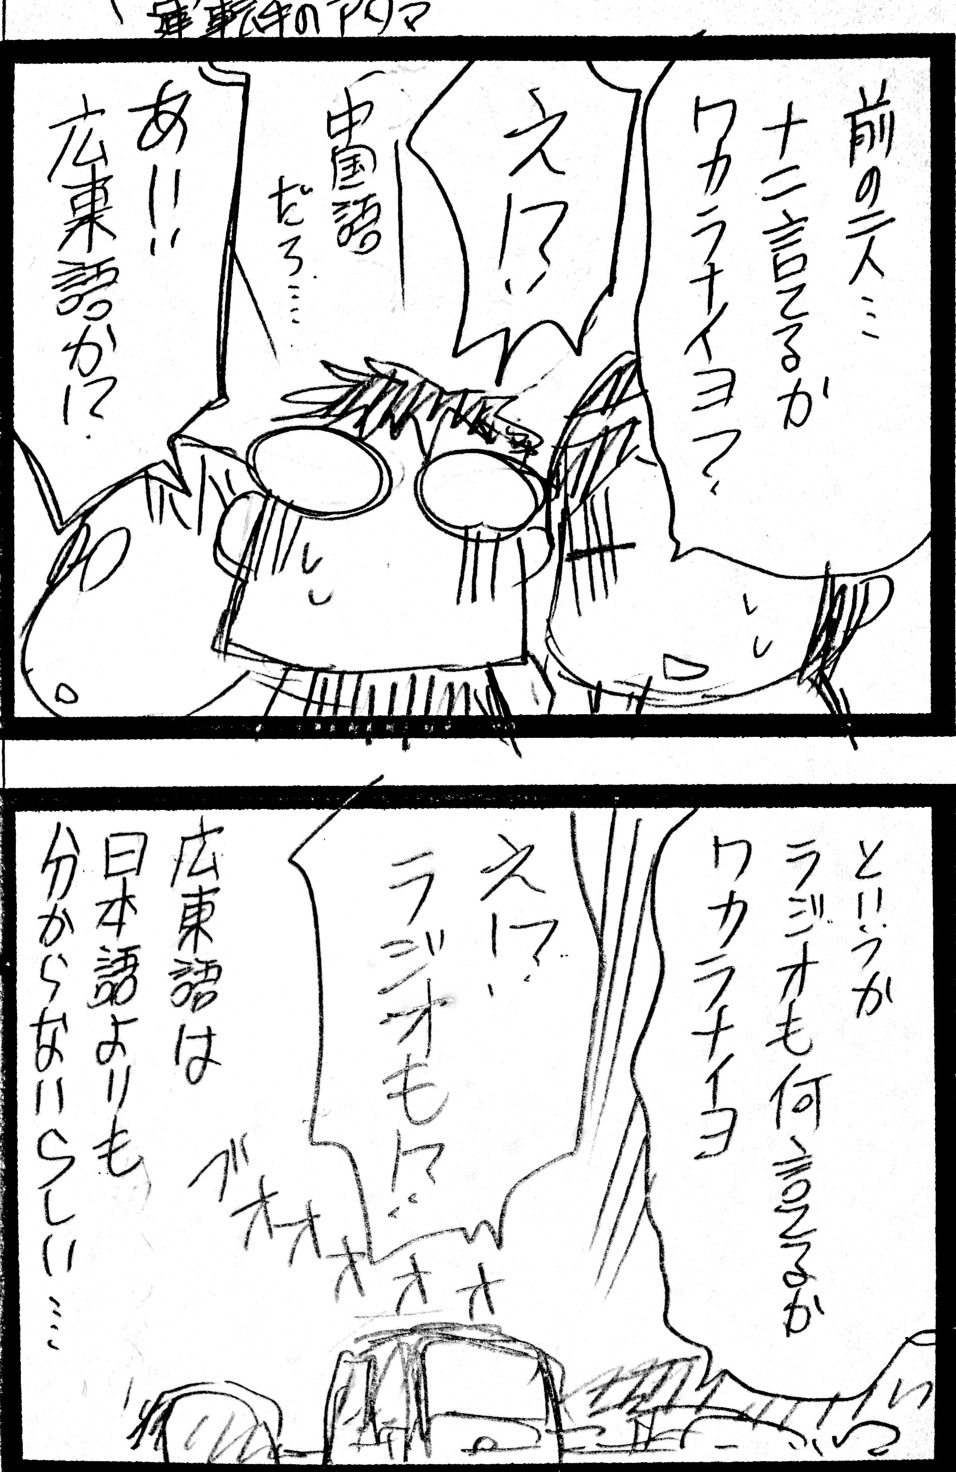 運転手のアタマ
前の二人…
ナニ言てるか
ワカラナイヨ？
え!?
中国語
だろ……
あ!!
広東語か!?
というか
ラジオも何言てるか
ワカラナイヨ
え!?
ラジオも!?
広東語は
日本語よりも
分からないらしい……
ブオオオオオ